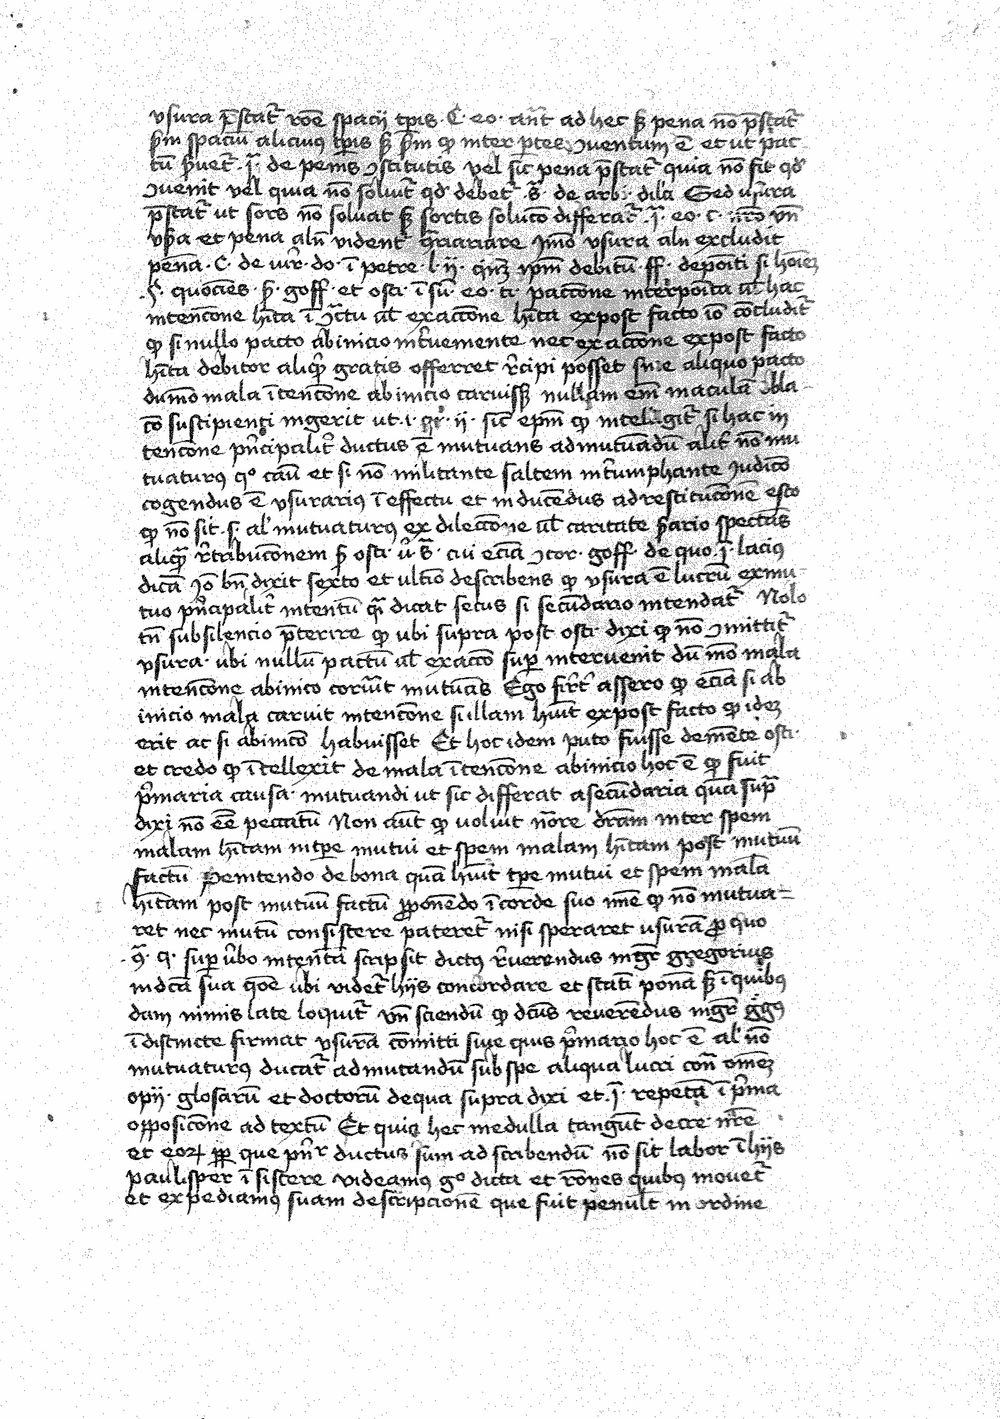 vsura p̄stat᷑ rōe spacij tp̄is · C · eo · an̄t ad hec sꝫ pena nō p̄stat᷑
p̄m spaciū alicuiꝰ tp̄is sꝫ p̄m ꝙ inter ꝑtes ꝯuentum ē et ut pac
tū
ꝯuenit vel quia nō soluit᷑ qd̄ debet᷑ · s̄ · de arb · dila Sed usura
p̄stat᷑ ut sors nō soluat᷑ sꝫ sortis solucō differat᷑ · j̄ · eo · c · nr̄o vn̄
vsura et pena aln̄ vident᷑ q̄riariare ymo vsura aln̄ excludit
penā · C · de iur̄ · do · ī petre l · ij · debitū · ff · depoīti si hoīem
§ · quociēs · p̄ · goff · et osti · ī sū · eo · ti · paccōne interpoīta ul̄ hac
intencōne hīta ī ul̄ exaccōne hīta expost facto iō concludit᷑
ꝙ si nullo pacto abinicio int᷑ueniente nec exaccōne expost facto
hīta debitor aliq̄ gratis offerret r̄cipi posset sine aliquo pacto
dūmō mala ītencōne abinicio caruissꝫ nullam em̄ maculā obla
cō suscipienti ingerit ut · i · q̄ · ij · sic̄ epm̄ ꝙ intelligit᷑ si hac in
tencōne pn̄cipalit᷑ ductus ē mutuans ad mutuādū alit᷑ nō mu
tuaturꝰ q° cāū et si nō militante saltem int᷑umphante iudicō
cogendus ē vsurariꝰ ī effectu et inducēdus ad restitucōnē esto
ꝙ nō sit · sꝫ al̄ mutuaturꝰ ex dileccōne ul̄ caritate p̄ario spectās
aliq̄ r̄tribucōnem p̄ osti · u · s̄ · cui eciā ꝯcor · goff · de quo · j̄ · laciꝰ
dicā Iō bn̄ dixit sexto et ultīo describens ꝙ vsura ē lucrū ex mu
tuo pn̄cipalit᷑ intentū q̄ dicat secus si secūdario intendat᷑ Nolo
tn̄ sub silencio p̄terire ꝙ ubi supra post osti · dixi ꝙ nō ꝯmittit᷑
vsura · ubi nullū pactū ul̄ exaccō suꝑ interuenit dū mō mala
intencōne abinicio mutuās Ego firt᷑ assero ꝙ eciā si ab
inicio mala caruit intencōne si illam hūit expost facto ꝙ idē
erit ac si abinicō habuisset Et hoc idem puto fuisse de mēte osti ·
et credo ꝙ ītellexit de mala ītencōne abinicio hoc ē ꝙ fuit
p̄maria causa · mutuandi ut sic differat a secūdaria quā suꝑ
dixi nō eē peccatū Non aut̄ ꝙ voluit nōre dr̄am inter spem
malam hītam in tꝑe mutui et spem malam hītam post mutuū
factū Penitendo de bona quā hūit tꝑe mutui et spem malā
hītam post mutuū factū ꝓponēdo ī corde suo ꝙ nō mutua
ret nec mutuū consistere pateret᷑ nisi speraret vsurā pro quo
· q · suꝑ u̅bo intentā scripsit dictꝰ r̄uerendus mgr̄ gregorius
in dcā sua qōe ubi videt᷑ hijs concordare et statī ponā sꝫ ī quibꝰ
dam nimis late loquit᷑ vn̄ sciendū ꝙ dcūs reuerēdus mgr̄ ggꝰ
ī distincte firmat vsurā cōmitti siue quis p̄mario hoc ē al̄ nō
mutuaturꝰ ducat᷑ ad mutandū sub spe aliqua lucri con̄ om̄em
opij · glosarū et doctorū de qua supra dixi et · j̄ · repetā ī p̄ma
opposicōne ad textū Et quia hec medulla tangūt decre nr̄e
et eoꝝ ꝓp que pn̄r ductus sum ad scribendū nō sit labor ī hijs
paulisper ī sistere videamus g° dicta et rōnes quibꝰ mouet᷑
et expediamꝰ suam descripcionē que fuit penult̄ in ordine